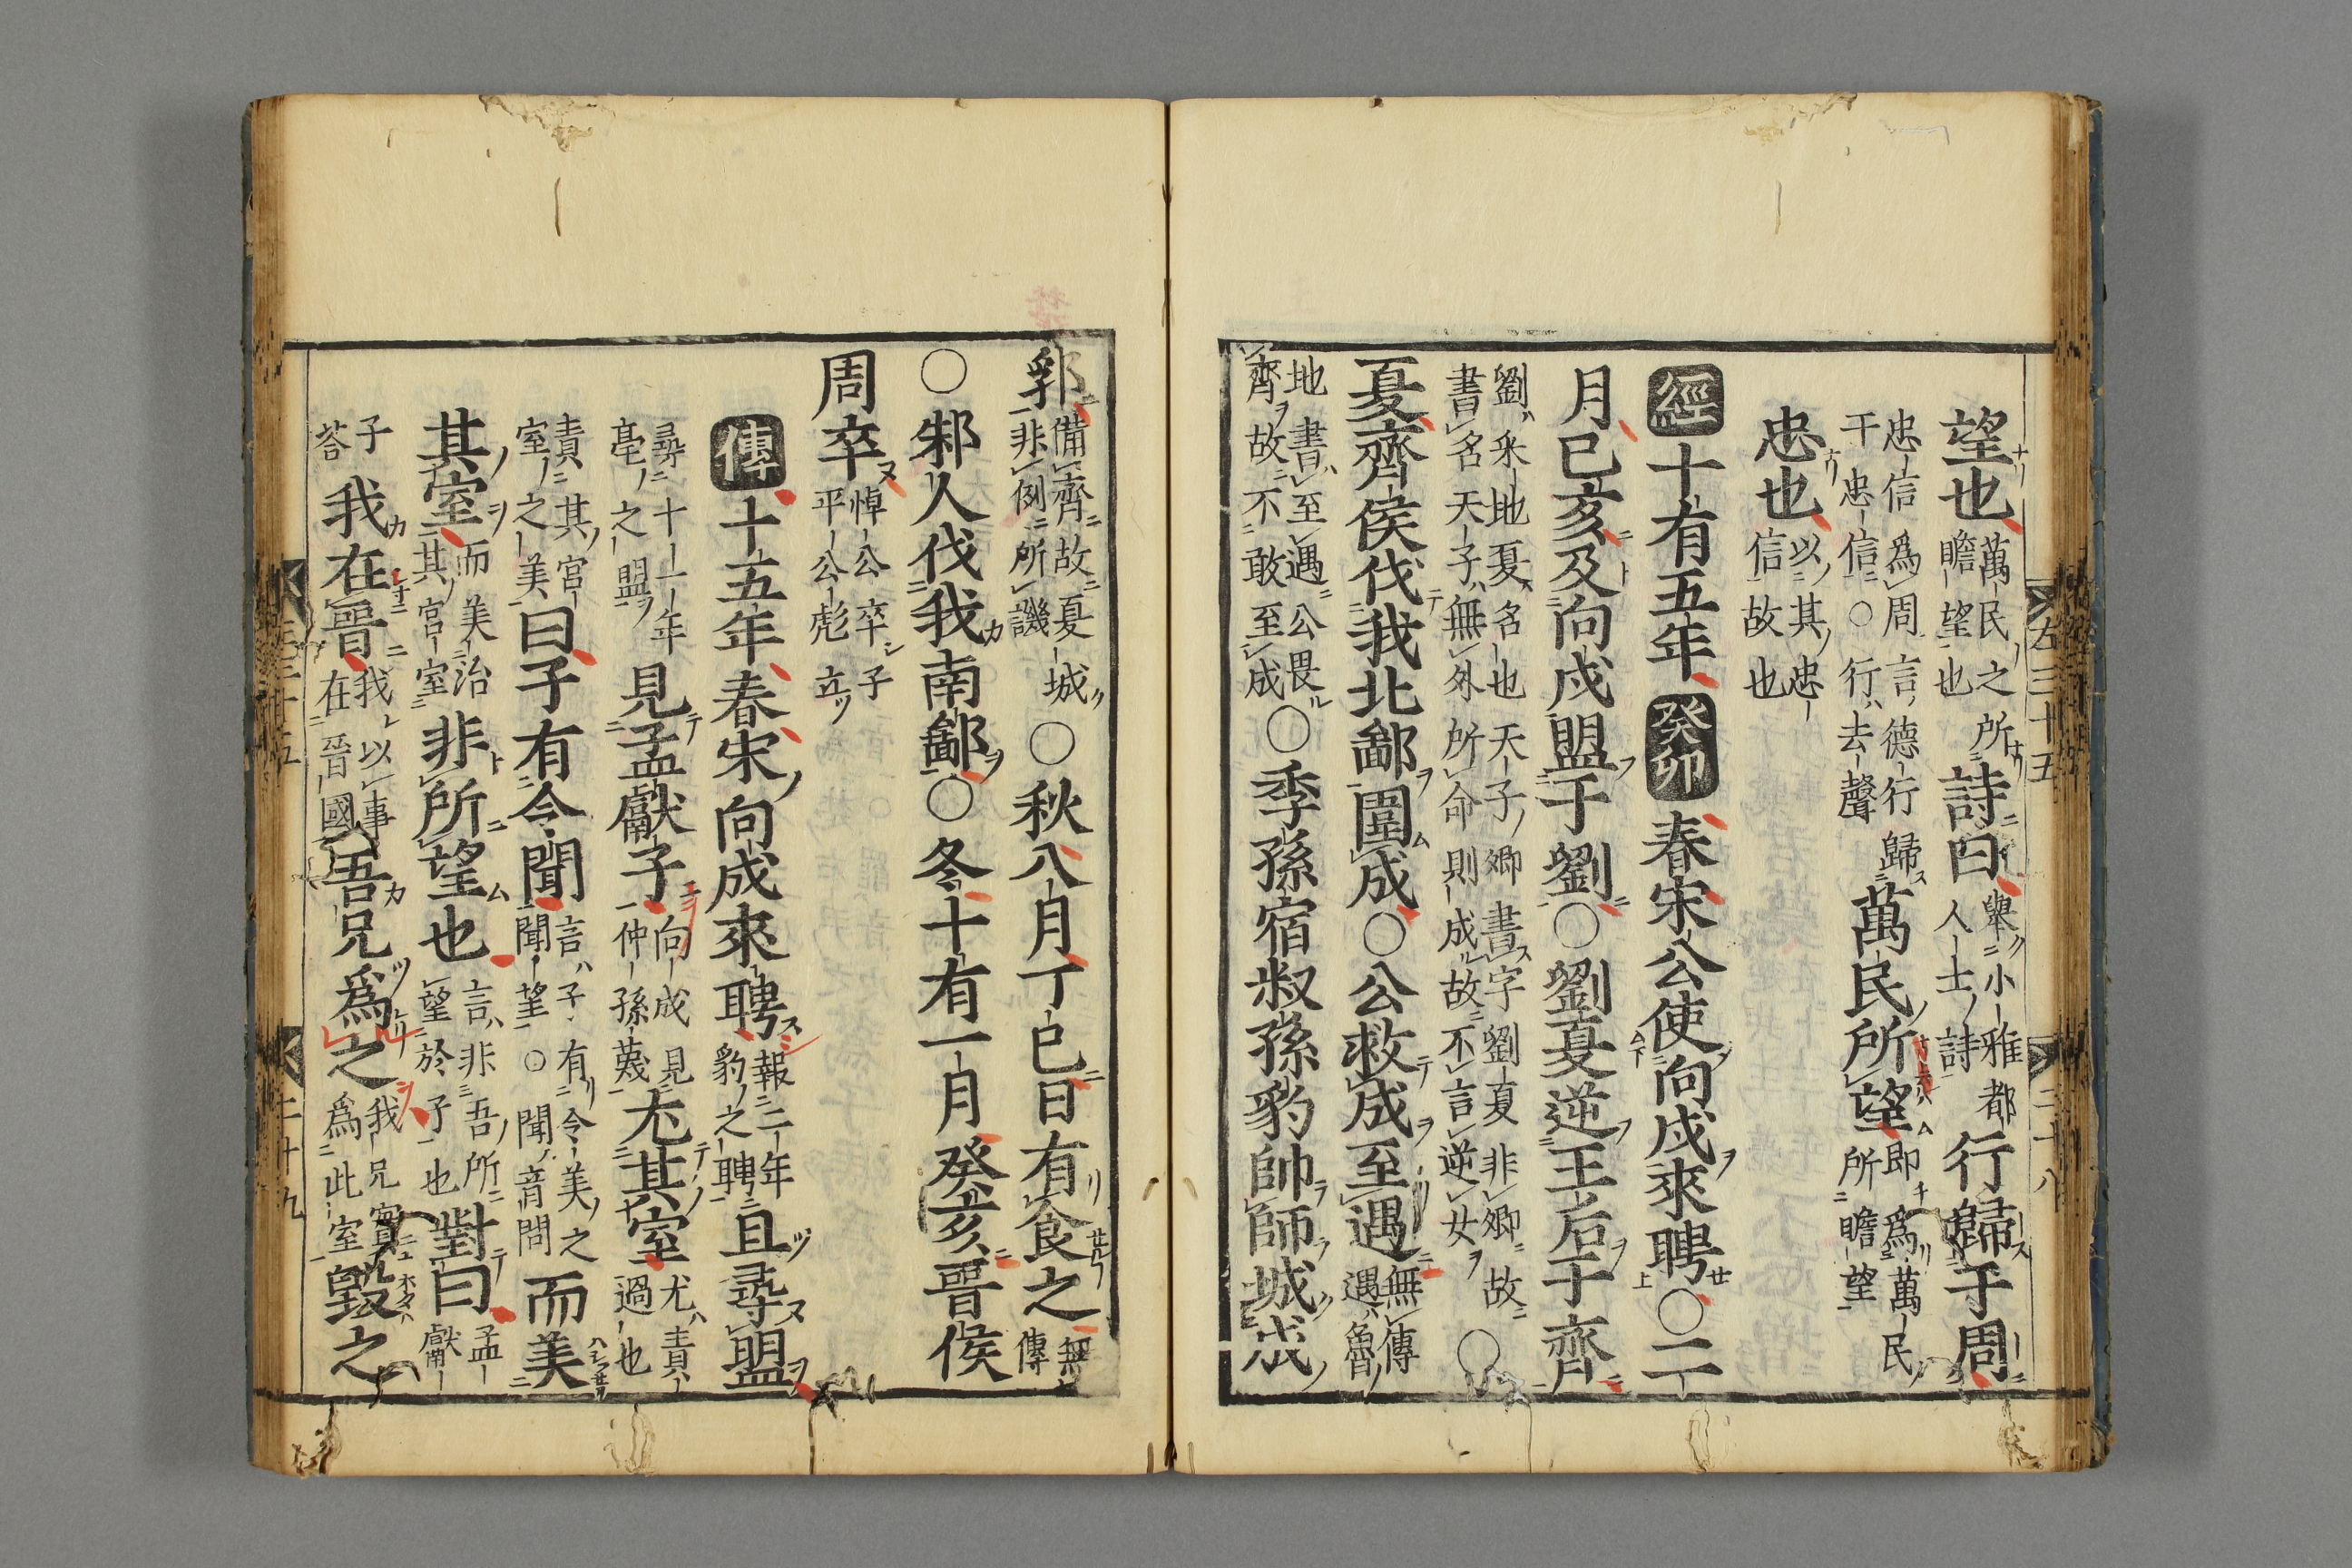 左三十五 二十八
望也 萬民之所瞻望也 詩曰 舉小雅都人士詩 行歸于周
忠信爲周言德行歸干忠信○行去聲 萬民所望 即爲萬民所瞻望
忠也 以其忠信故也
經 十有五年 癸卯 春宋公使向戌來聘○二
月己亥及向戌盟于劉○劉夏逆王后于齊
劉采地夏名也天子卿書字劉夏非卿故書名天子無外所命則成故不言逆女 ○
夏齊侯伐我北鄙圍成○公救成至遇 無傳遇魯
地書至遇公畏齊故不敢至成 ○季孫宿叔孫豹帥師城成
郛 備齊故夏城非例所譏 ○秋八月丁巳日有食之 無傳
○邾人伐我南鄙○冬十有一月癸亥晉侯
周卒 悼公卒子平公彪立
傳 十五年春宋向戌來聘 報二年豹之聘 且尋盟
尋十一年亳之盟 見孟獻子 向戌見仲孫蔑 尤其室 尤責過也
責其宮室之美 曰子有令聞 言子有令美之聞望○聞音問 而美
其室 而美治其宮室 非所望也 言非吾所望於子也 對曰 孟獻
子荅 我在晉 我以事在晉國 吾兄爲之 我兄寔爲此室 毀之
二十九